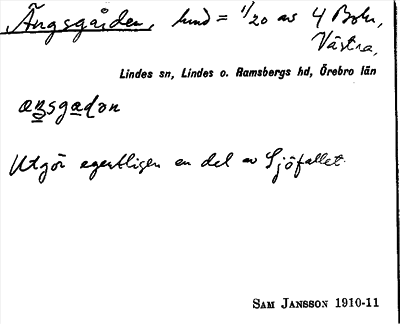 Ängsgården, hund = 1/20 av 4 Boh,
Västra,
Lindes sn, Lindes o. Ramsbergs hd, Örebro län
aŋsgadɷn
Utgör egentligen en del av Sjöfallet.
SAM JANSSON 1910-11